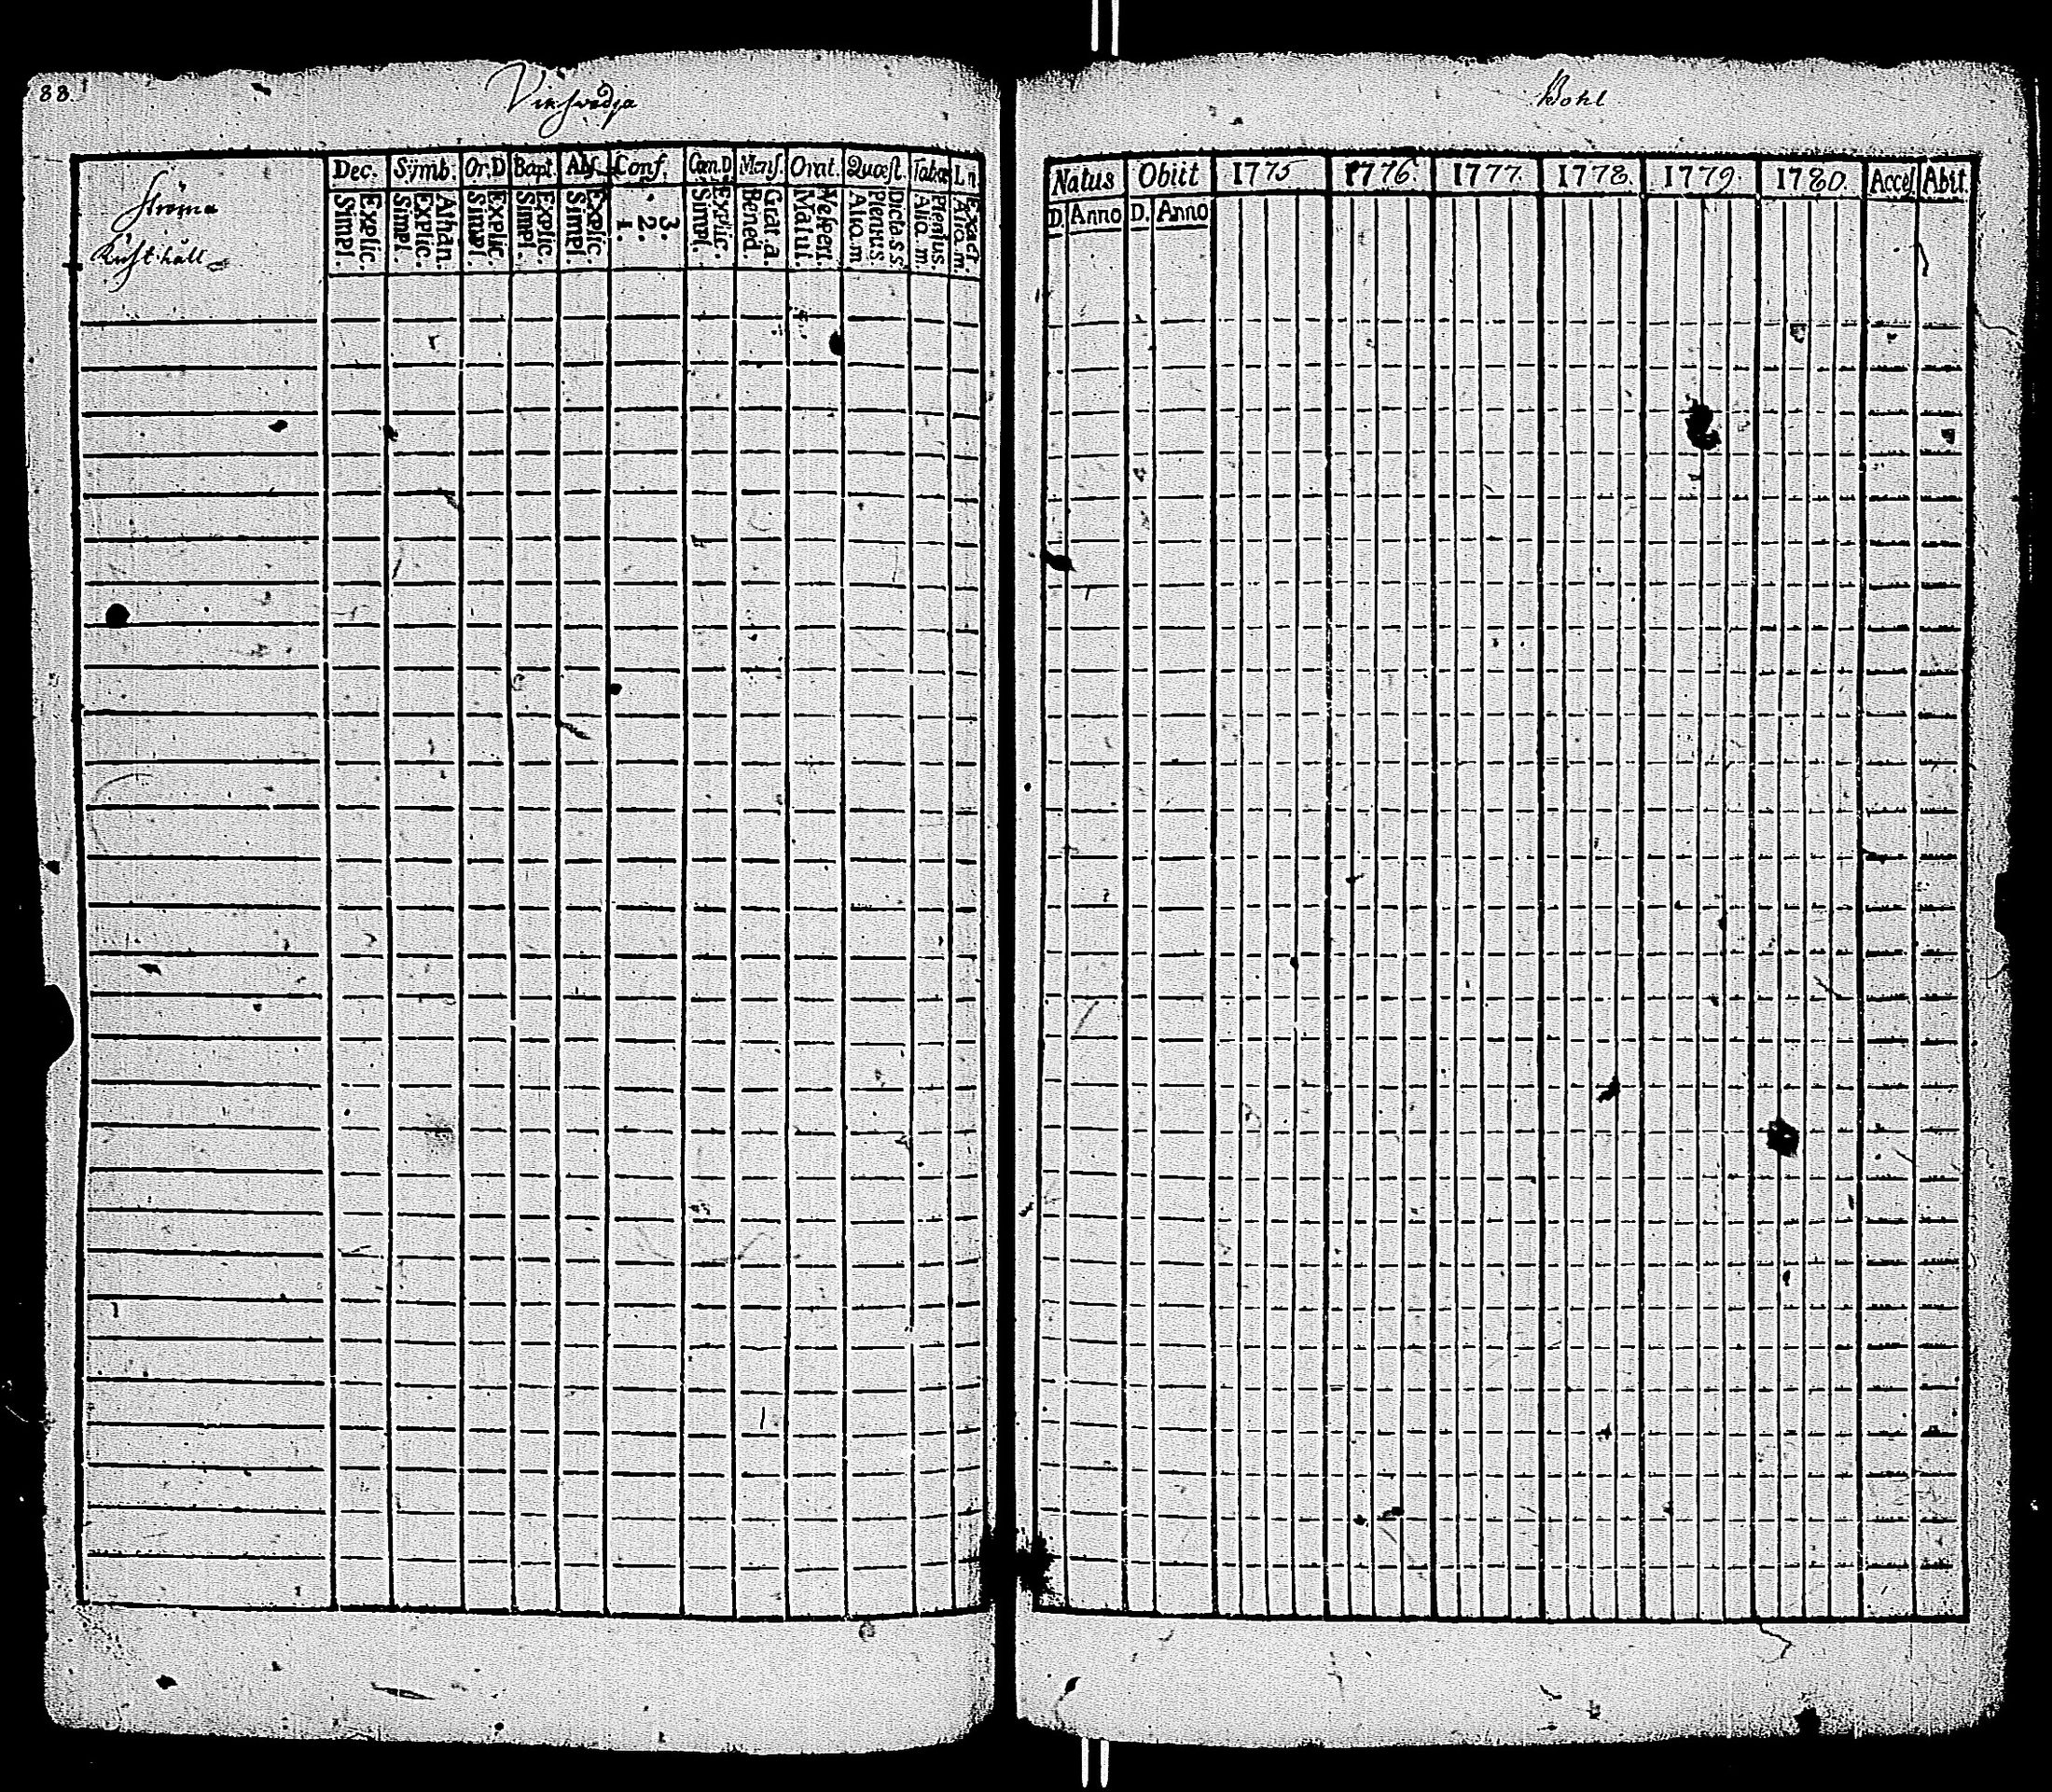 88.
Bohl
Ströma
Rusthåll
Dec. Sÿmb. Or.D Bapt. Abs. Conf. Cœn.D Mens. Orat. Quœst. Tabœ L.n.
Explic. Simpl. Athan. Explic. Simpl. Explic. Simpl. Explic. Simpl. Explic. Simpl. 3. 2. 1. Explic. Simpl. Grat.a. Bened. Vesper. Matut. Dicta s.s. Plenus. Alio.m Plenius. Alio.m Exact Alio.m.
Natus Obiit 1775 1776. 1777. 1778. 1779. 1780. Acces. Abit.
D. Anno D. Anno